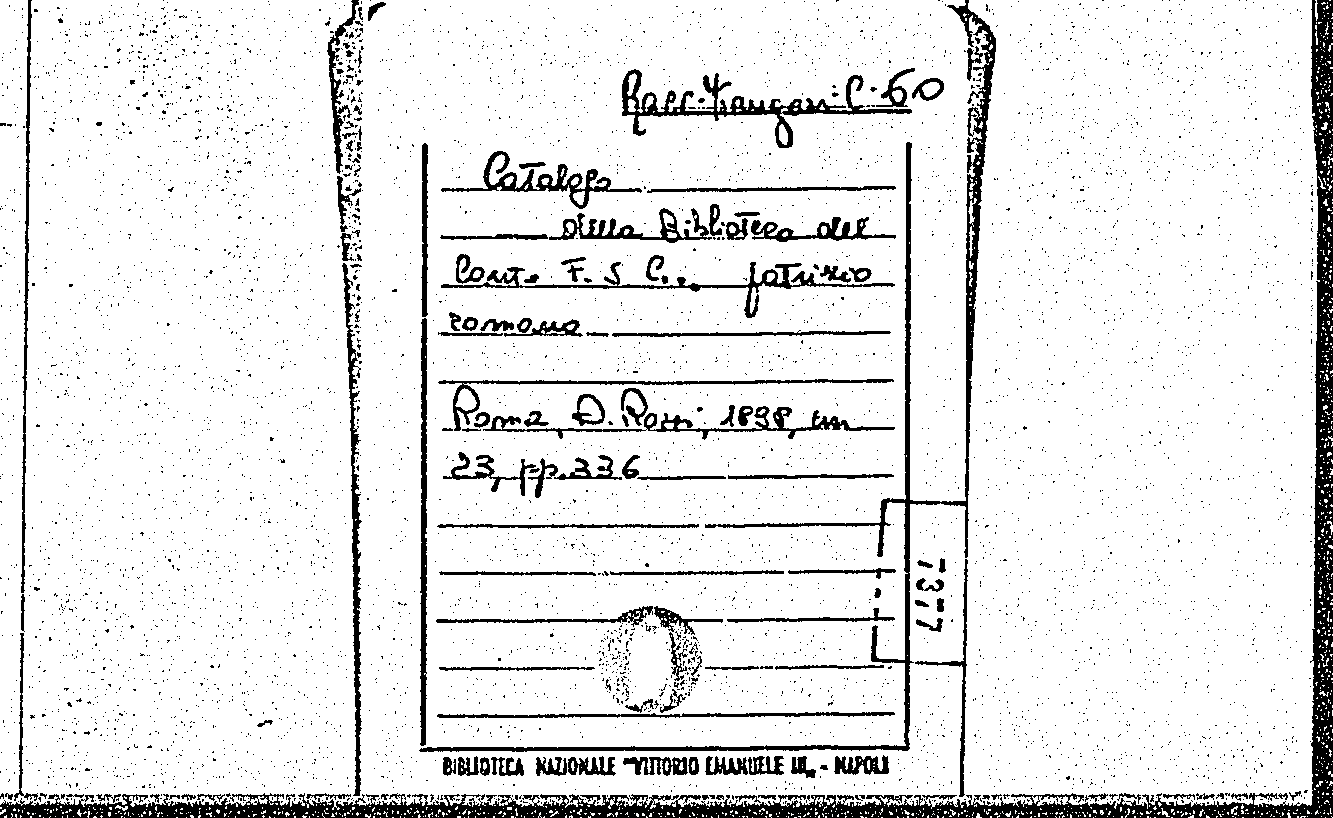 Racc. C. 60
Catalogo
della Biblioteca del
Conte F. S C... patrizio
romano
Roma, D. Rossi, 1898, cm
23, pp. 336
7377
BIBLIOTECA NAZIONALE "VITTORIO EMANUELE III„ - NAPOLI